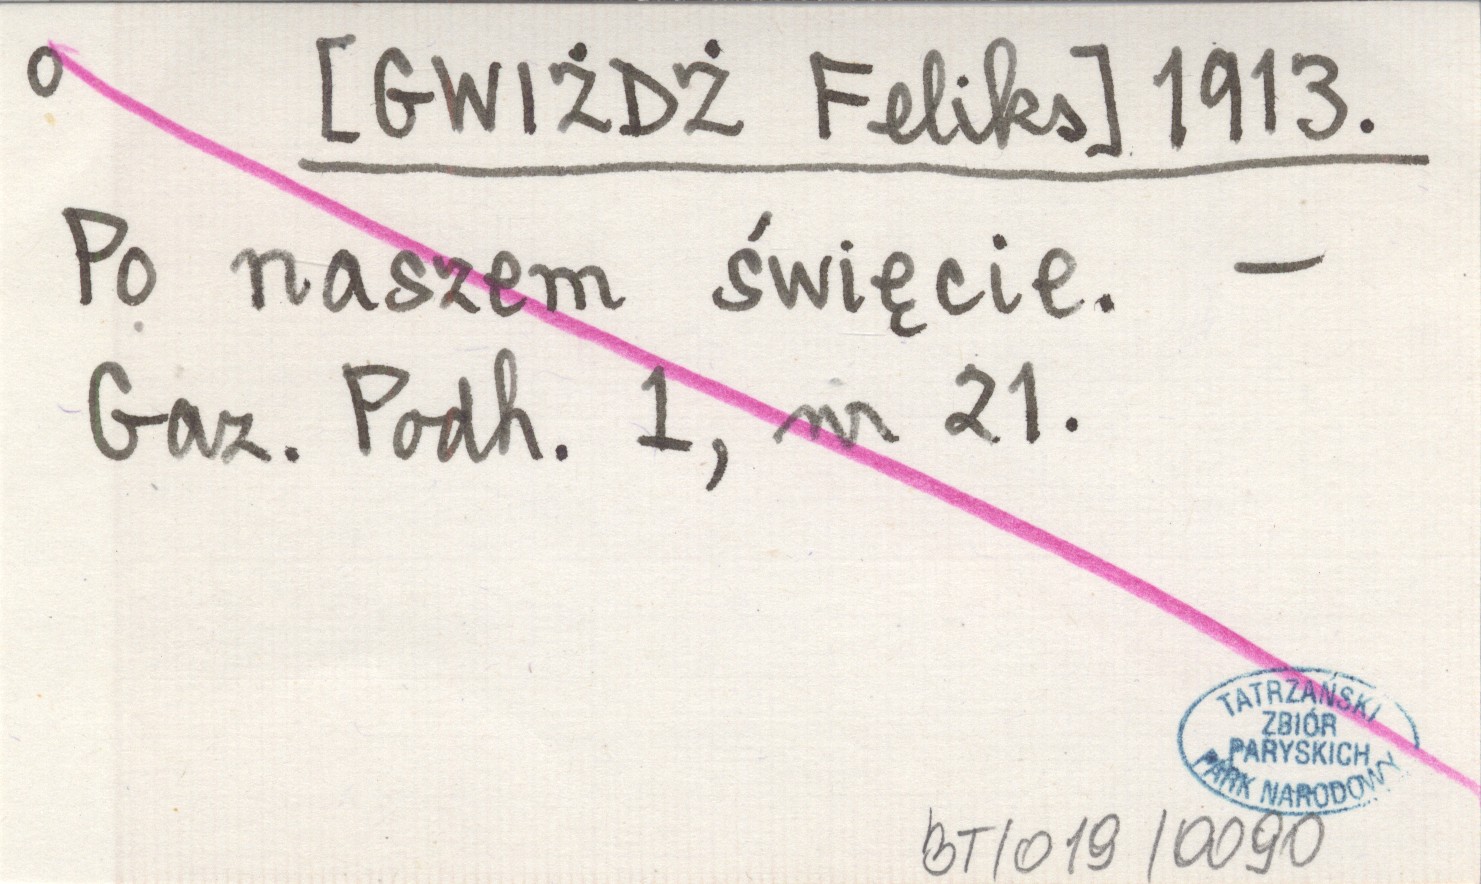 o [GWIŻDŻ Feliks] 1913.
Po naszem święcie. –
Gaz. Podh. 1, nr 21.
TATRZAŃSKI
ZBIÓR
PARYSKICH
PARK NARODOWY
BT/019/0090